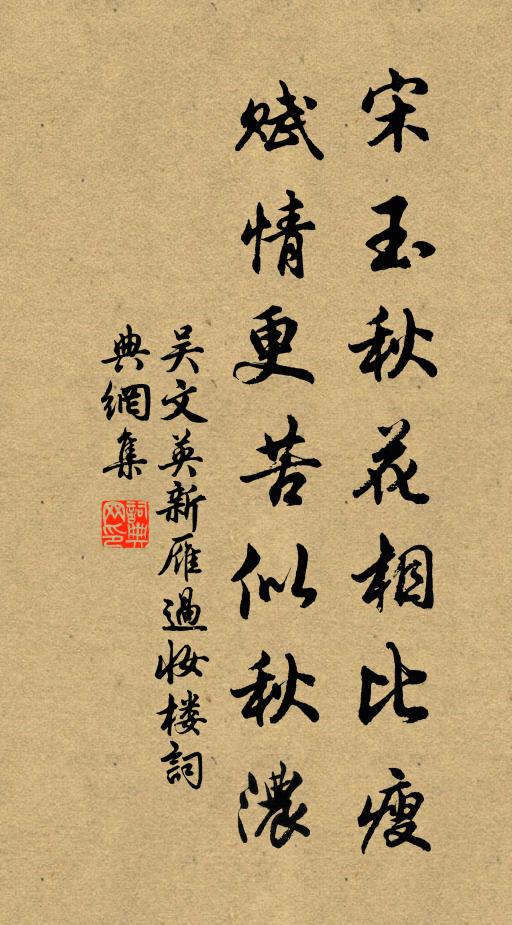 宋玉秋花相比瘦
赋情更苦似秋濃
吴文英新雁過妆楼詞
典網集
詞典網印